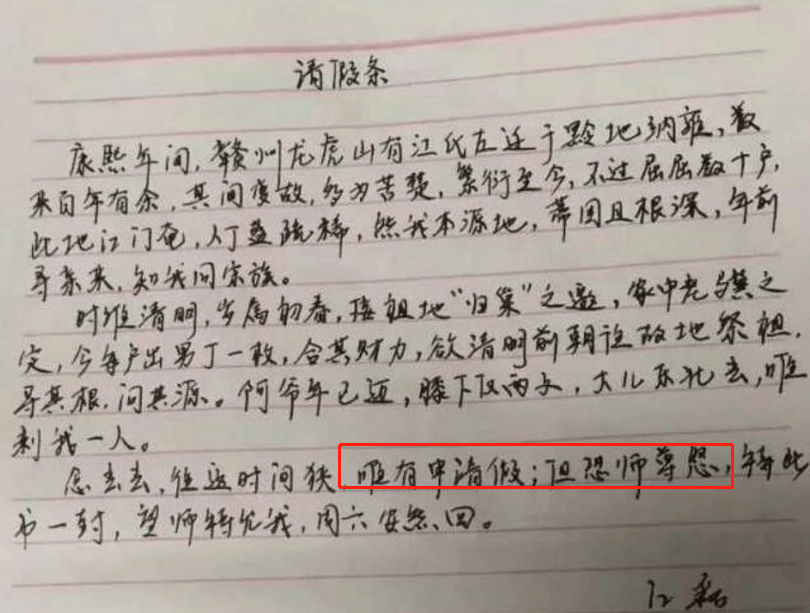 请假条
康熙年间,赣州龙虎山有江氏左迁于黔地纳雍,数
来百年有余,其间变故,多为苦楚,繁衍至今,不过屈屈数十户,
此地江门奄,人丁益疏稀,然我本源地,蒂固且根深,年前
寻亲来,知我同宗族。
时维清明,岁属初春,接祖地“归巢”之邀,家中老者其之
定,今每户出男丁一枚,合其财力,欲清明前朝往故地祭祖,
寻其根,问其源。阿爷年已迈,膝下仅两子,大儿东北去,唯
剩我一人。
念去去,往返时间狭,唯有申请假;但恐师尊怒,特此
书一封,望师特允我,周六安然回。
江